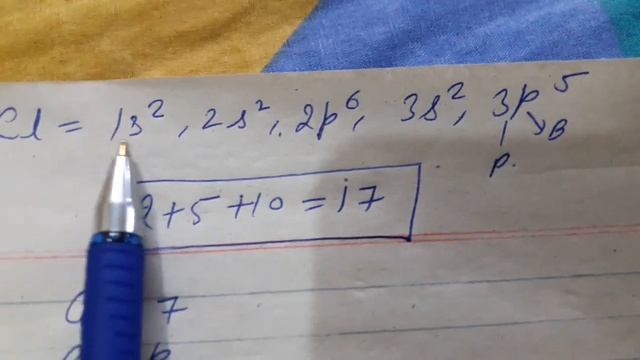 Cl = 1s², 2s², 2p⁶, 3s², 3p⁵
P. B
2+5+10 = 17
7